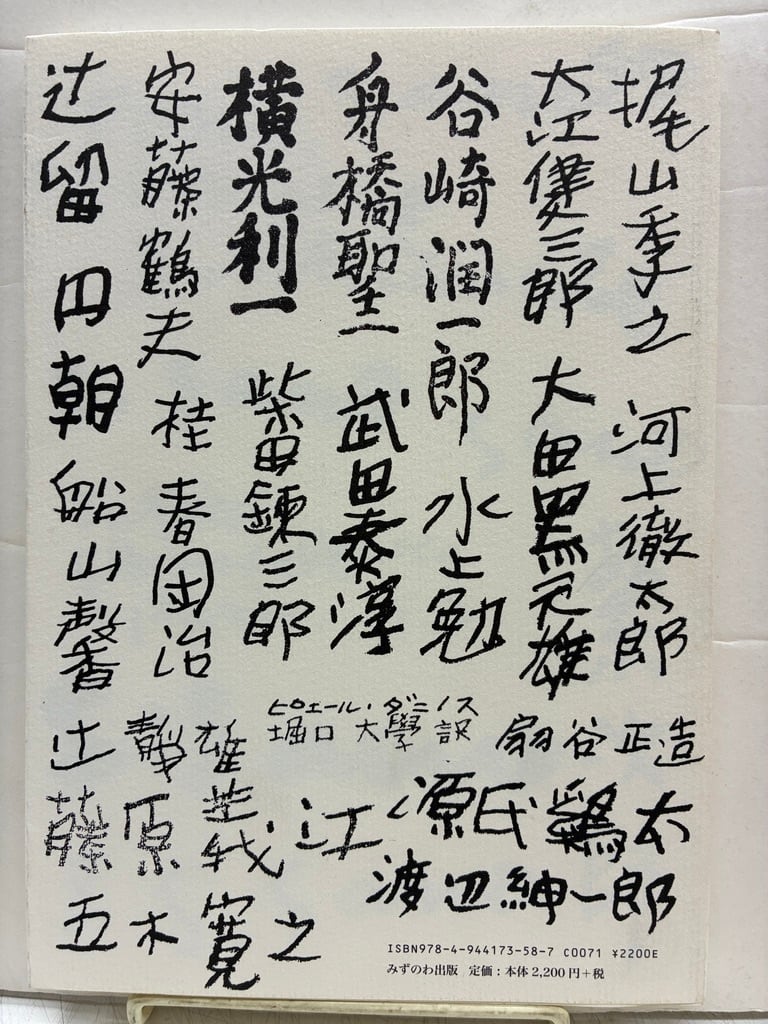 梶山季之
河上徹太郎
大江健三郎
大田黒元雄
谷崎潤一郎
水上勉
舟橋聖一
武田泰淳
横光利一
柴田錬三郎
安藤鶴夫
桂春団治
辻留
円朝
船山馨
辻静雄
ピエール・ダニノス
堀口大學訳
扇谷正造
藤原義江
源氏鶏太
渡辺紳一郎
五木寛之
ISBN978-4-944173-58-7 C0071 ¥2200E
みずのわ出版 定価:本体2,200円+税